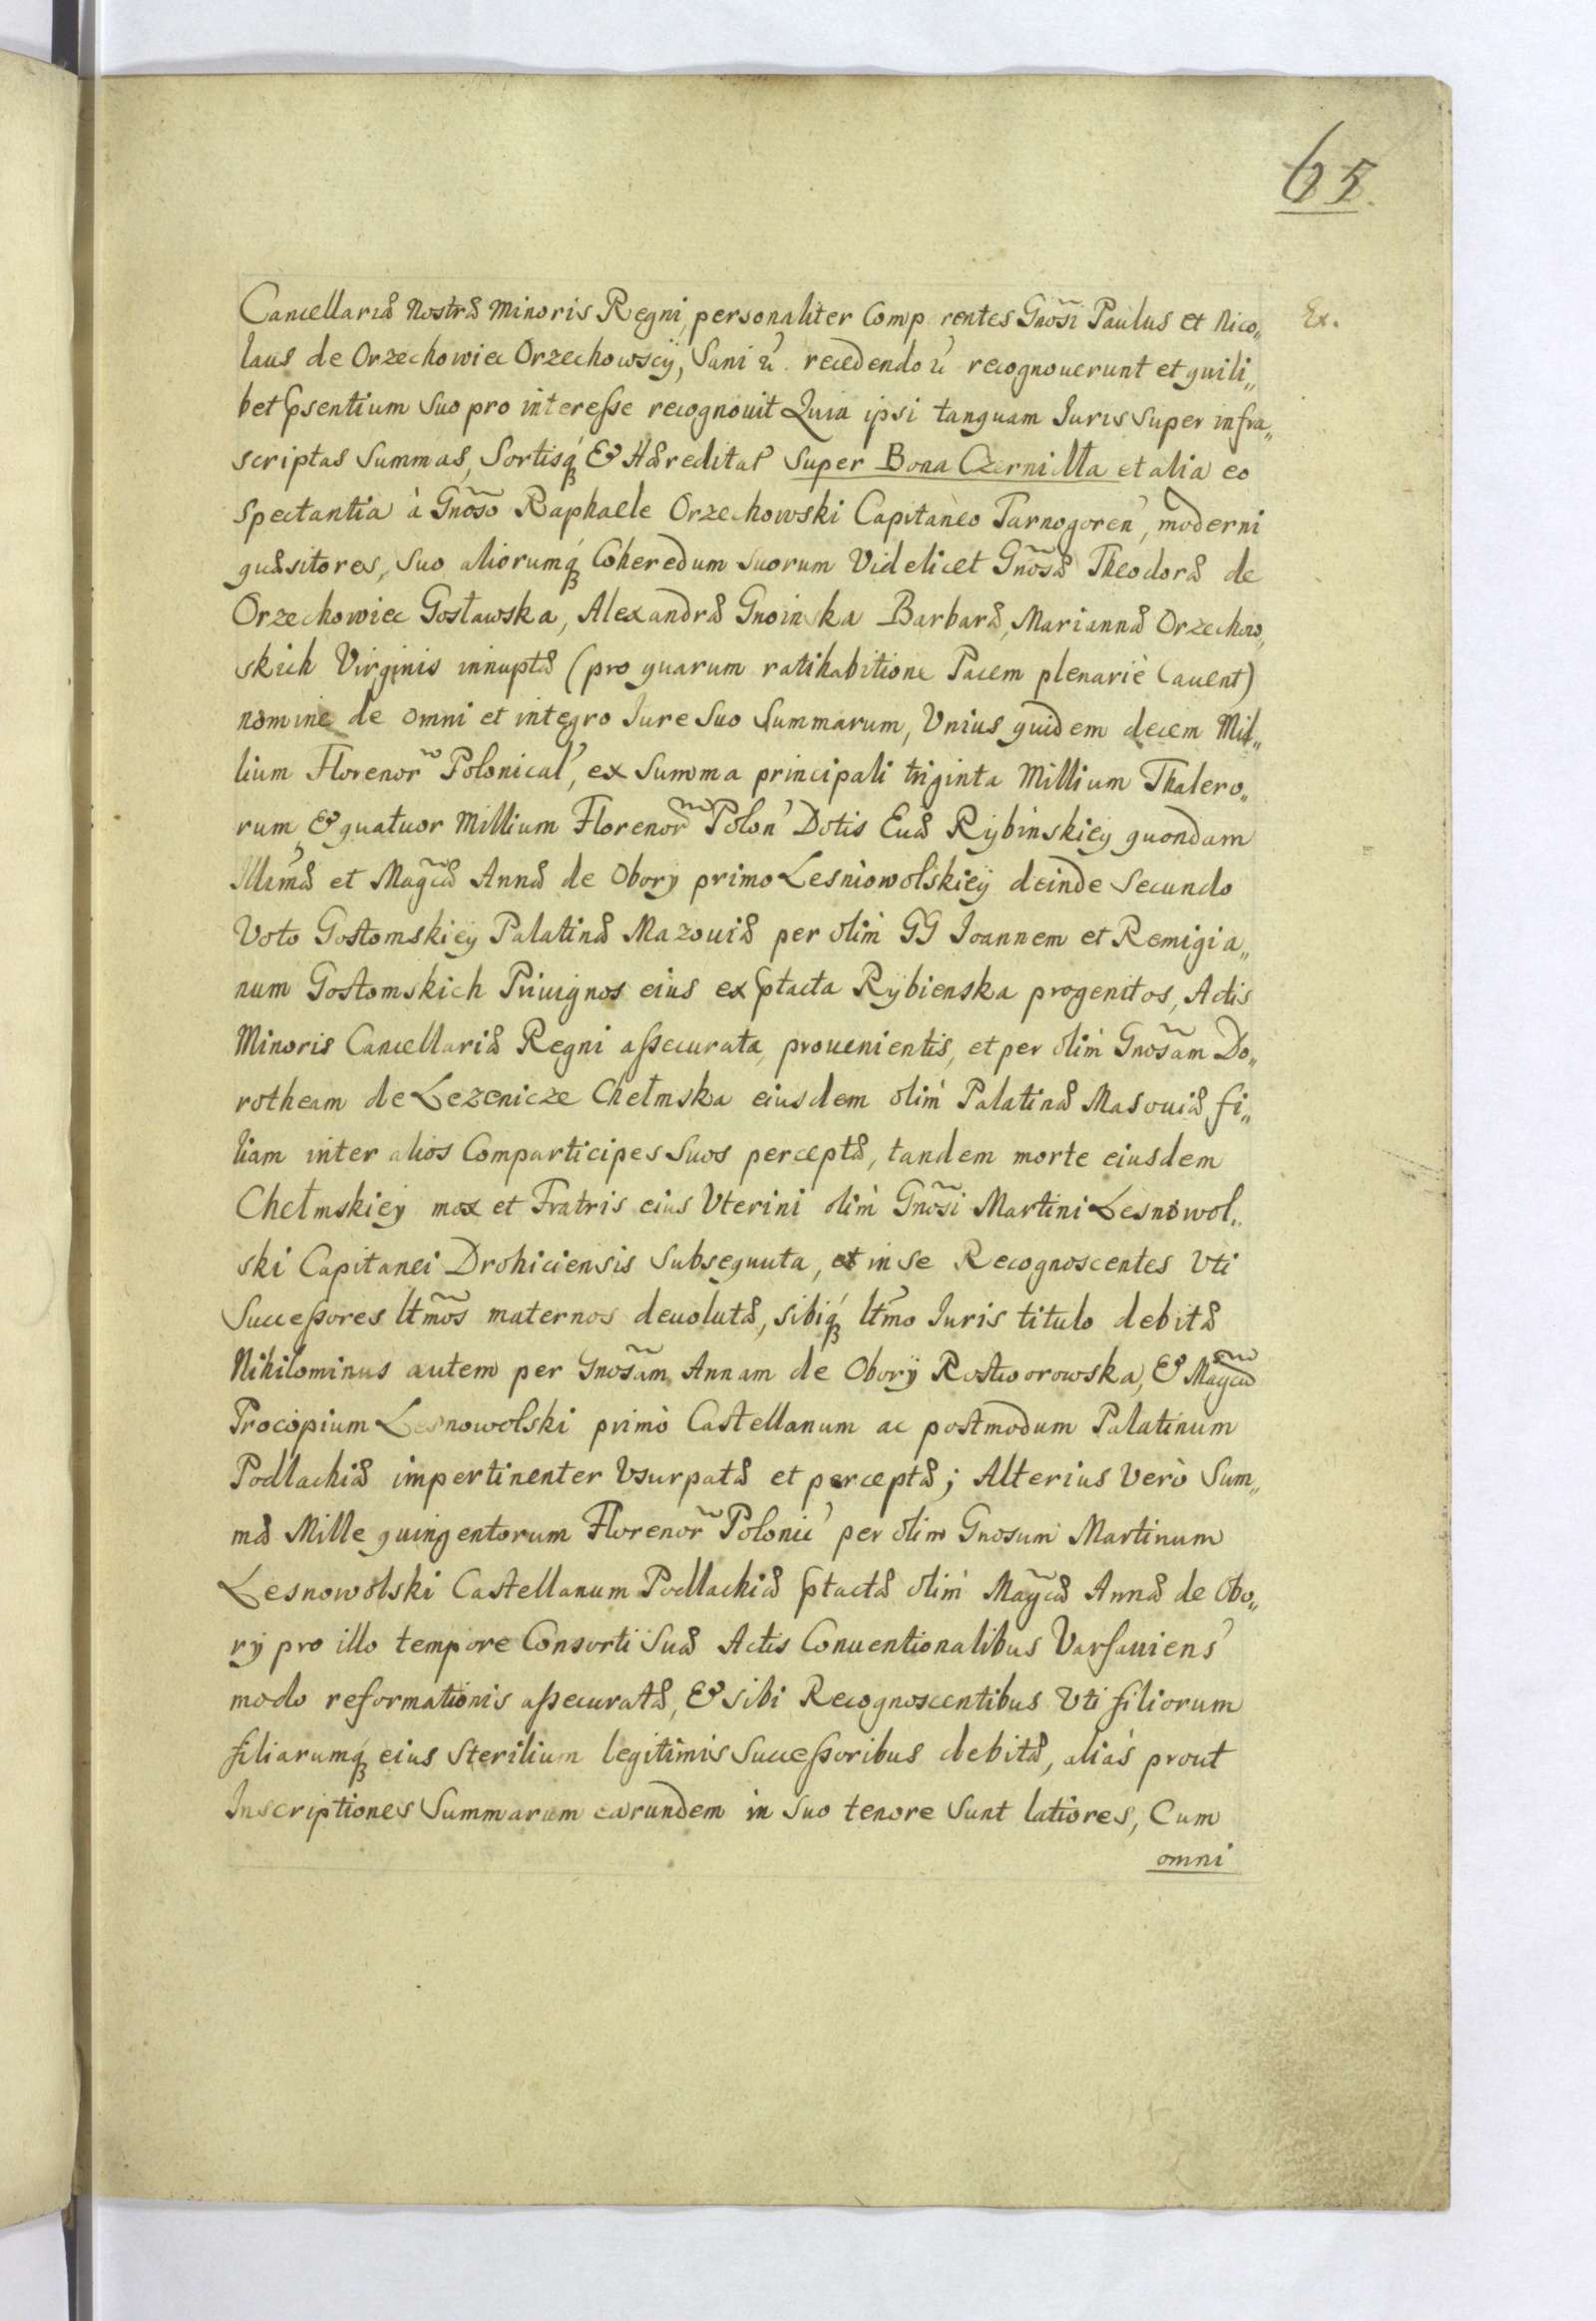 65.
Cancellariæ Nostræ Minoris Regni, personaliter Comp rentes Gnõsi Paulus et Nico„
laus de Orzechowiec Orzechowscÿ, Sani &c. recedendo &c recognouerunt et quili„
bet Psentium Suo pro interesse recognouit Quia ipsi tanquam Iuris Super infra„
scriptas Summas, Sortisq́ & Hæreditat Super Bona Czernilla et alia eo
spectantia à Gnõso Raphaele Orzechowski Capitaneo Tarnogoren', moderni
quæsitores, Suo aliorumq́ Coheredum Suorum Videlicet Gnõsæ Theodoræ de
Orzechowiec Gosławska, Alexandræ Gnoinska Barbaræ, Mariannæ Orzechow„
skich Virginis innuptæ (pro quarum ratihabitione Pacem plenariè Cauent)
nomine de omni et integro Iure Suo Summarum, Vnius quidem decem Mil„
lium Florenor̃ Polonical', ex Summa principali triginta Millium Thalero„
rum & quatuor Millium Florenor̃ Polon' Dotis Euæ Rÿbinskieÿ quondam
Illmæ et Magcæ Annæ de Oborÿ primo Lesniowolskieÿ deinde Secundo
Voto Gostomskieÿ Palatinæ Mazouiæ per olim GG Ioannem et Remigia„
num Gostomskich Priuignos eius ex Ptacta Rÿbienska progenitos, Actis
Minoris Cancellariæ Regni assecurata, prouenientis, et per olim Gnosam Do„
rotheam de Lezenicze Chełmska eiusdem olim Palatinæ Masouiæ fi„
liam inter alios Comparticipes Suos perceptæ, tandem morte eiusdem
Chełmskieÿ mox et Fratris eius Vterini olim Gnõsi Martini Lesnowol„
ski Capitanei Drohiciensis Subsequuta, et in Se Recognoscentes Vti
Successores ltmõs maternos deuolutæ, sibiq́ ltmo Iuris titulo debitæ
Nihilominus autem per Gnosam Annam de Oborÿ Rostworowska, & Magcũ
Procopium Lesnowolski primò Castellanum ac postmodum Palatinum
Podlachiæ impertinenter Vsurpatæ et perceptæ; Alterius Verò Sum„
mæ Mille quingentorum Florenor̃ Polonic' per olim Gnosum Martinum
Lesnowolski Castellanum Podlachiæ Ptactæ olim Magcæ Annæ de Obo„
rÿ pro illo tempore Consorti Suæ Actis Conuentionalibus Varsauiens'
modo reformationis assecuratæ, & Sibi Recognoscentibus Vti filiorum
filiarumq́ eius Sterilium legitimis Successoribus debitæ, aliàs prout
Inscriptiones Summarum earundem in Suo tenore Sunt latiores, Cum
omni
Ex.